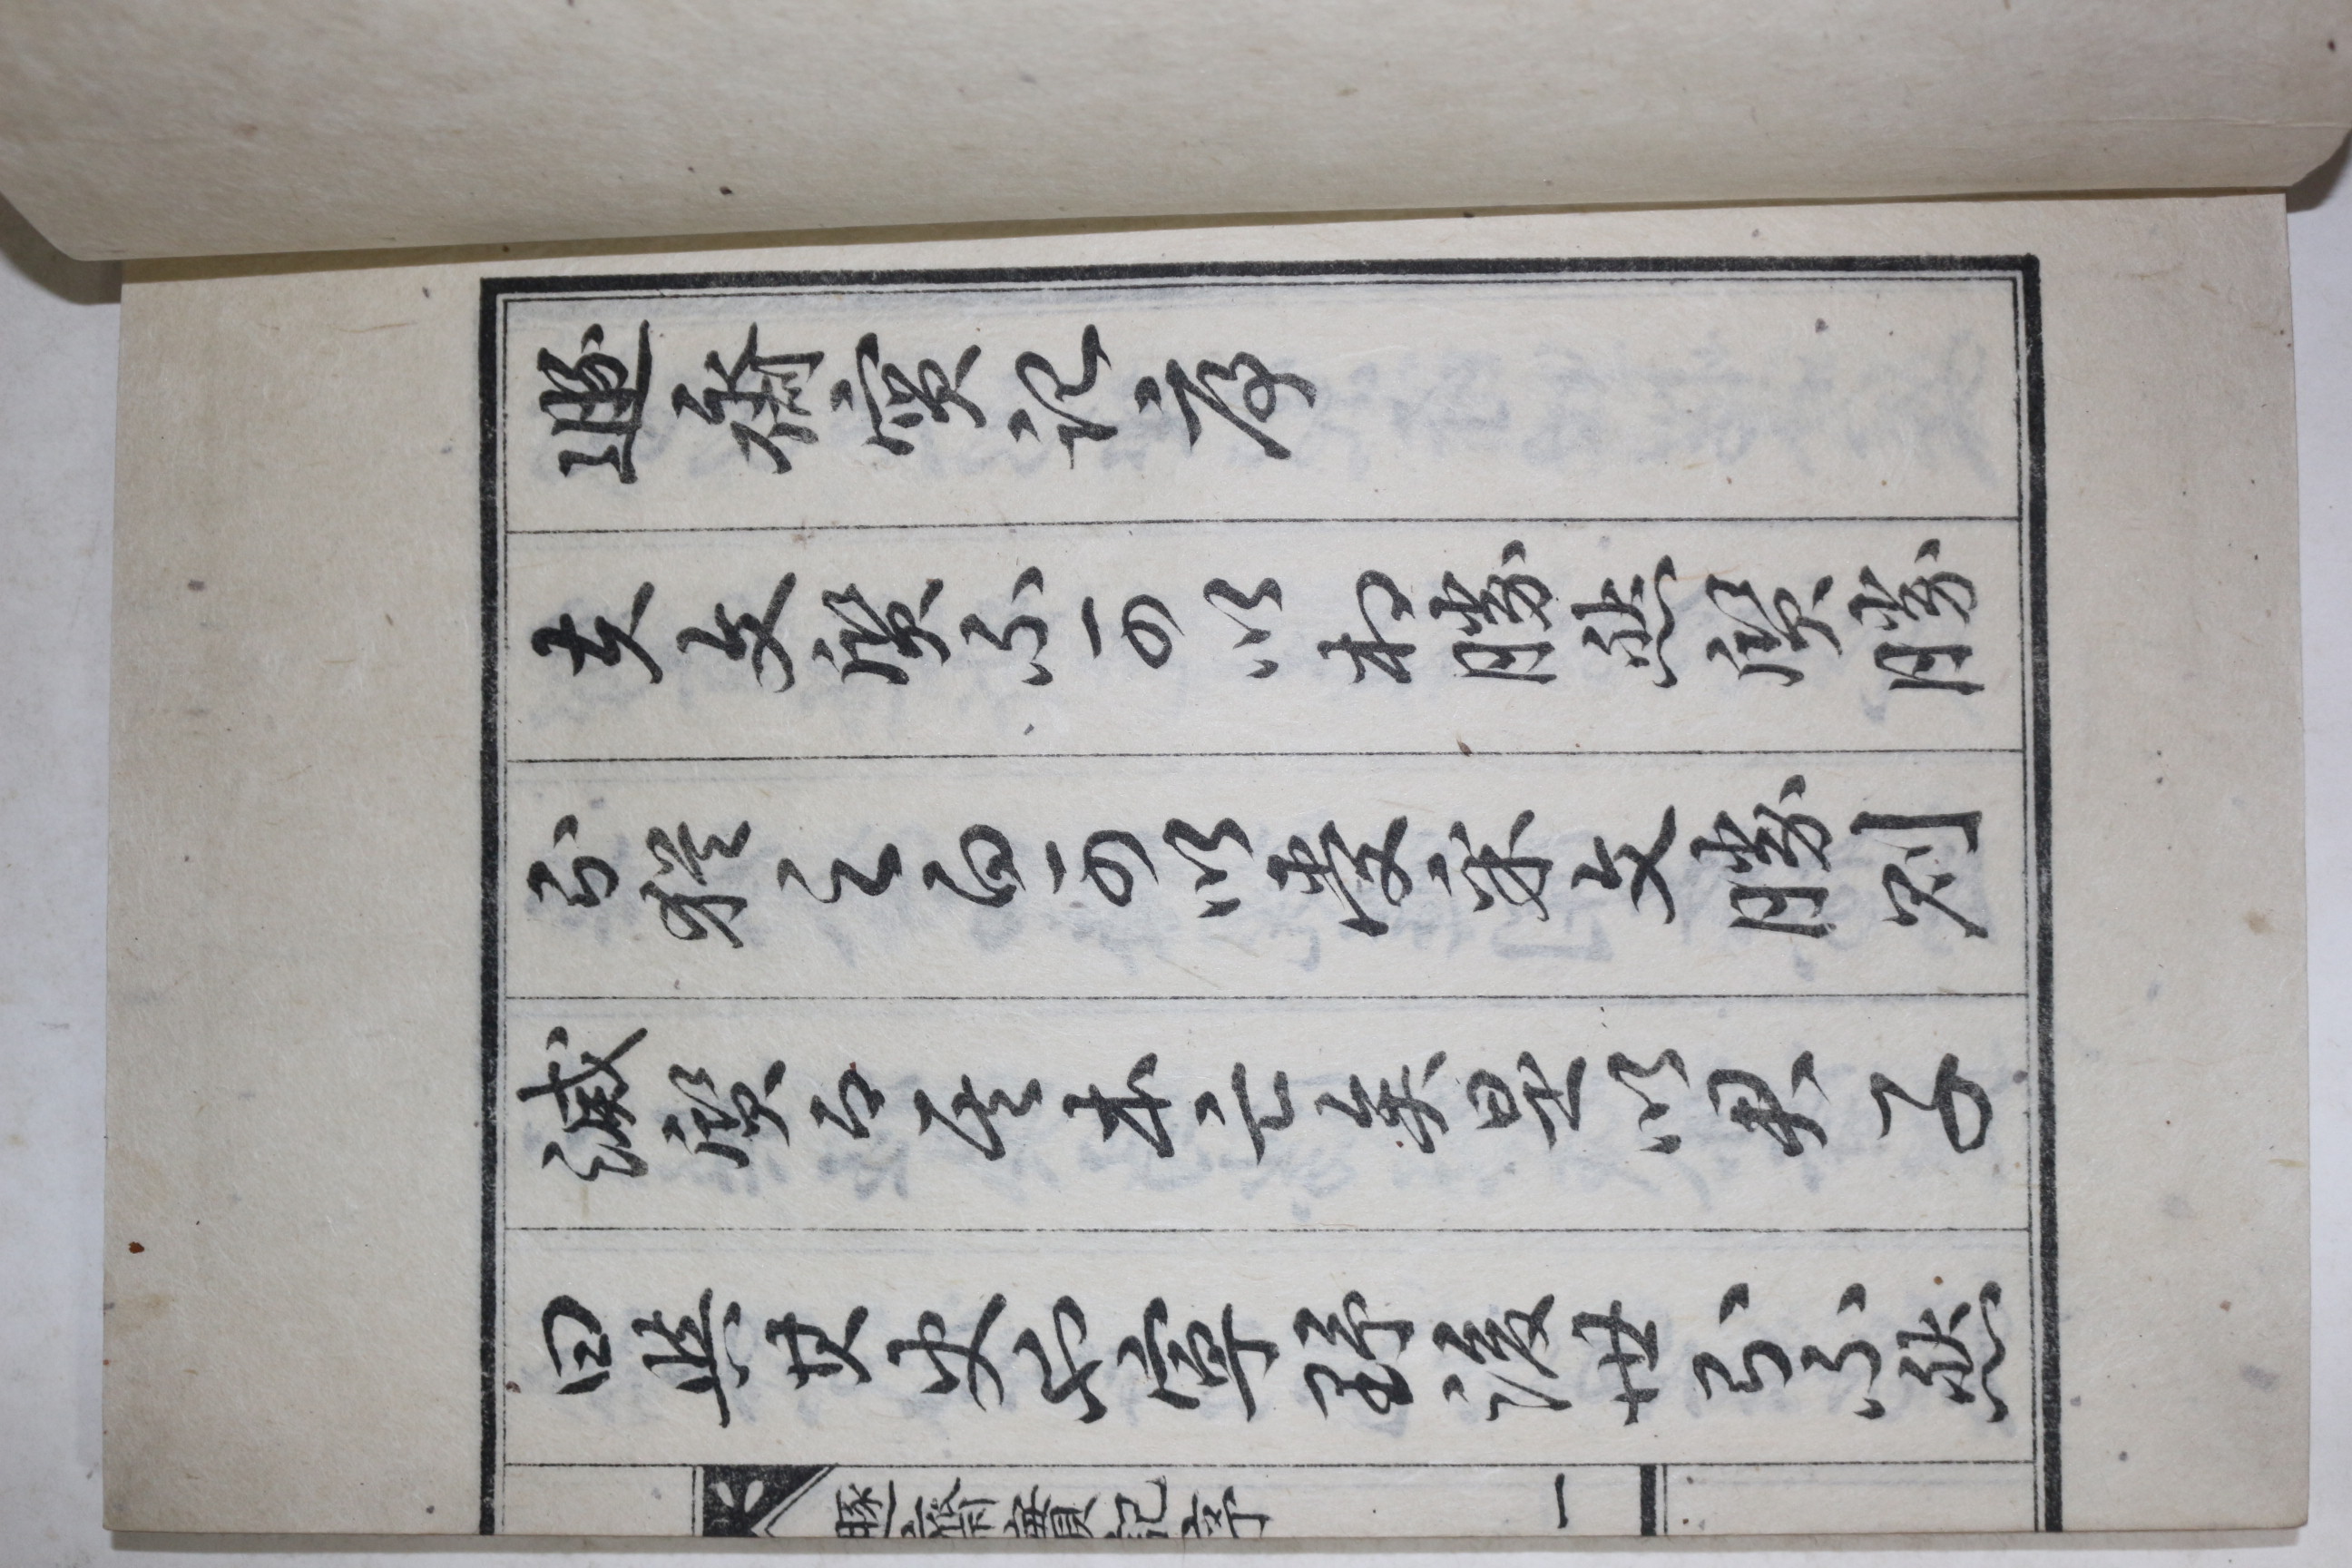 遯齋實記序
夫文質不可以相勝然質勝
則猶之白可以受采文勝則
滅質而其本亡矣是以君子
曰與其史也寧野後世則不然
遯齋實記序 一